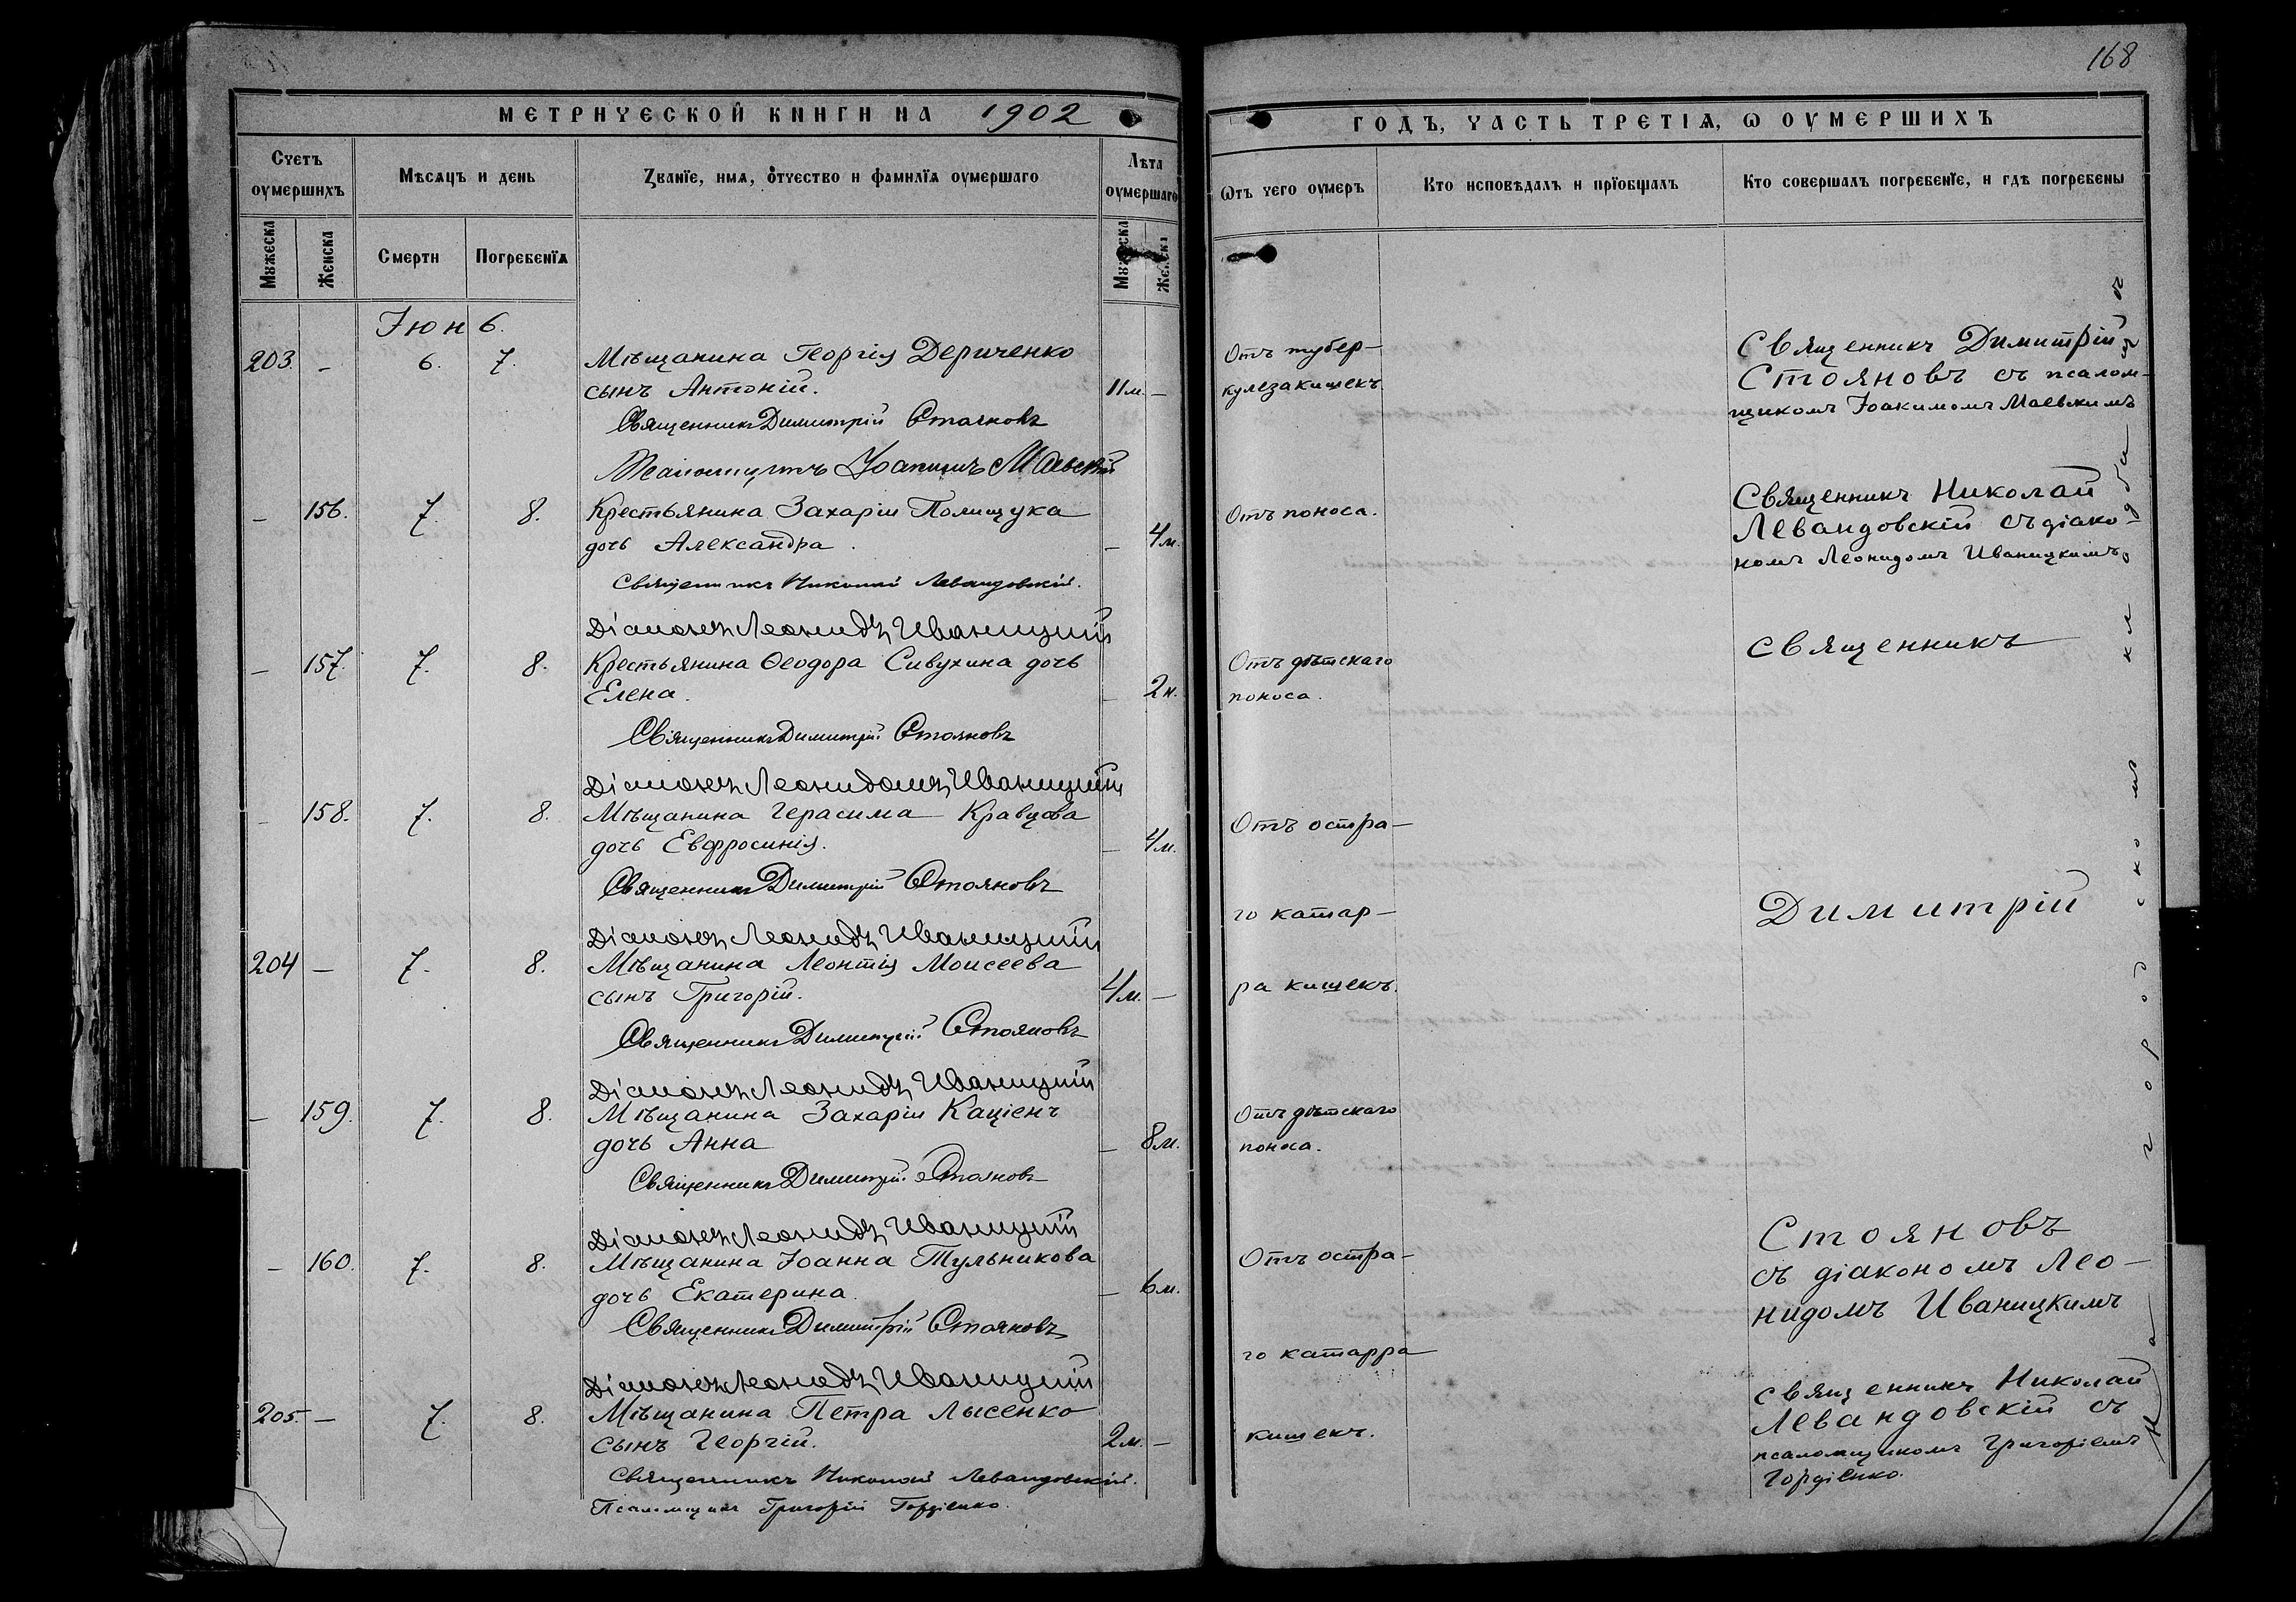 168
МЕТРИЧЕСКОЙ КНИГИ НА 1902
ГОДЪ, ЧАСТЬ ТРЕТІѦ, Ѡ ОУМЕРШИХЪ
Счетъ оумершихъ
Мѣсѧцъ и день
Званїе, имѧ, ѻтчество и фамилїѧ оумершаго
Лѣта оумершаго
Ѿтъ чего оумеръ
Кто исповѣдалъ и прїобщалъ
Кто совершалъ погребенїе, и гдѣ погребены
Мꙋжеска
Женска
Смерти
Погребенїѧ
Мꙋжеска
Женска
Іюнь
203. – 6. 7. Мѣщанина Георгія Дериченко
сынъ Антоній. 11м. –
Священникъ Димитрій Стояновъ
Псаломщикъ Іоакимъ Маевскій
Отъ тубер-
кулеза кишекъ
Священникъ Димитрій
Стояновъ съ псалом-
щикомъ Іоакимомъ Маевскимъ
– 156. 7. 8. Крестьянина Захаріи Полищука
дочь Александра. – 4м.
Священникъ Николай Левандовскій.
Діаконъ Леонидъ Иваницкій
Отъ поноса.
Священникъ Николай
Левандовскій съ діако-
номъ Леонидомъ Иваницкимъ
– 157. 7. 8. Крестьянина Ѳеодора Сивухина дочь
Елена. – 2н.
Священникъ Димитрій Стояновъ
Діаконъ Леонидомъ Иваницкій
Отъ дѣтскаго
поноса.
Священникъ
– 158. 7. 8. Мѣщанина Герасима Кравцова
дочь Евфросинія. – 4м.
Священникъ Димитрій Стояновъ
Діаконъ Леонидъ Иваницкій
Отъ остра-
го катар-
Димитрій
204 – 7. 8. Мѣщанина Леонтія Моисеева
сынъ Григорій. 4м. –
Священникъ Димитрій Стояновъ
Діаконъ Леонидъ Иваницкій
ра кишекъ.
– 159. 7. 8. Мѣщанина Захаріи Каціенъ
дочь Анна – 8м.
Священникъ Димитрій Стояновъ
Діаконъ Леонидъ Иваницкій
Отъ дѣтскаго
поноса.
– 160. 7. 8. Мѣщанина Іоанна Тульникова
дочь Екатерина. – 6м.
Священникъ Димитрій Стояновъ
Діаконъ Леонидъ Иваницкій
Отъ остра-
го катарра
Стояновъ
съ діакономъ Лео-
нидомъ Иваницкимъ
205. – 7. 8. Мѣщанина Петра Лысенко
сынъ Георгій. 2м. –
Священникъ Николай Левандовскій.
Псаломщикъ Григорій Гордіенко.
кишекъ.
Священникъ Николай
Левандовскій съ
псаломщикомъ Григоріемъ
Гордіенко.
На городскомъ кладбищѣ